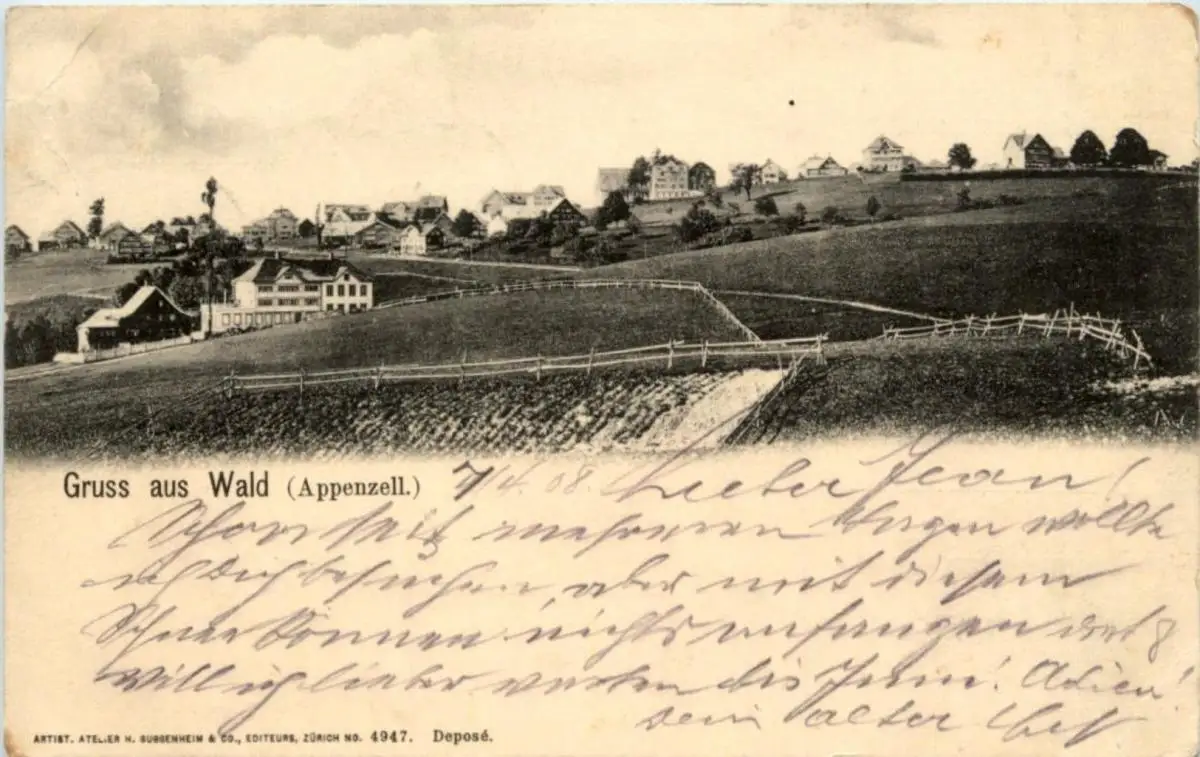 Gruss aus Wald (Appenzell.) 7/4.08. Lieber Jean!
Schon seit mehreren Tagen wollte
ich Dich besuchen, aber mit diesem
Schnee können nichts anfangen
Will ich lieber warten bis Juni! Adieu!
dein alter
ARTIST. ATELIER H. GUGGENHEIM & CO., EDITEURS, ZÜRICH NO. 4947. Deposé.